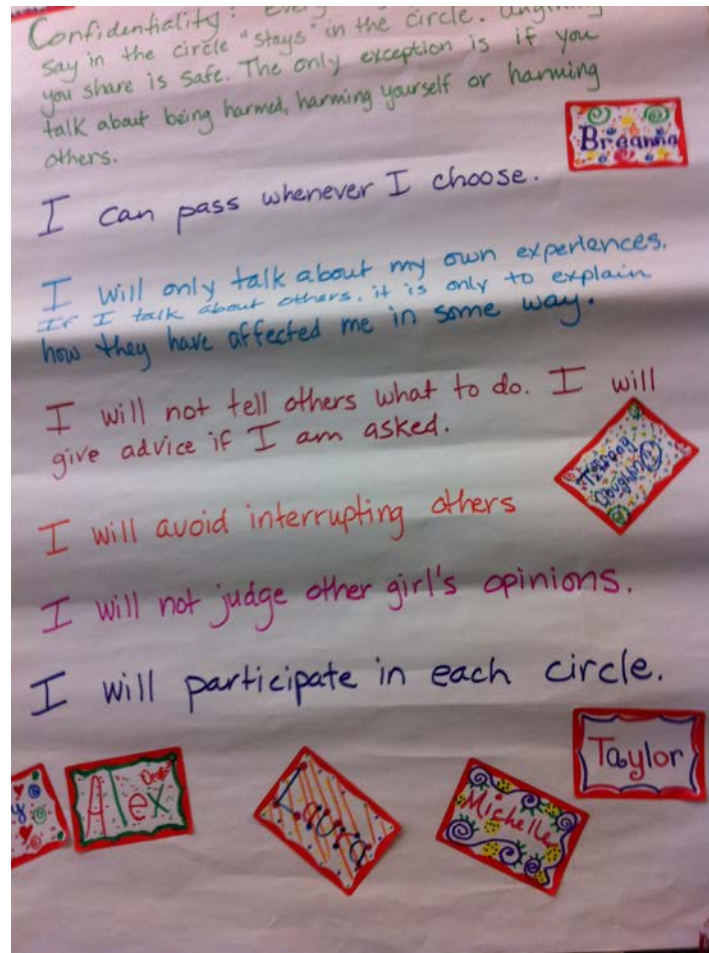 Confidentiality:
say in the circle "stays" in the circle.
you share is safe. The only exception is if you
talk about being harmed, harming yourself or harming
others.
Breanna
I can pass whenever I choose.
I will only talk about my own experiences.
If I talk about others, it is only to explain
how they have affected me in some way.
I will not tell others what to do. I will
give advice if I am asked.
I will avoid interrupting others
I will not judge other girl's opinions.
I will participate in each circle.
Taylor
Alex
Laura
Michelle